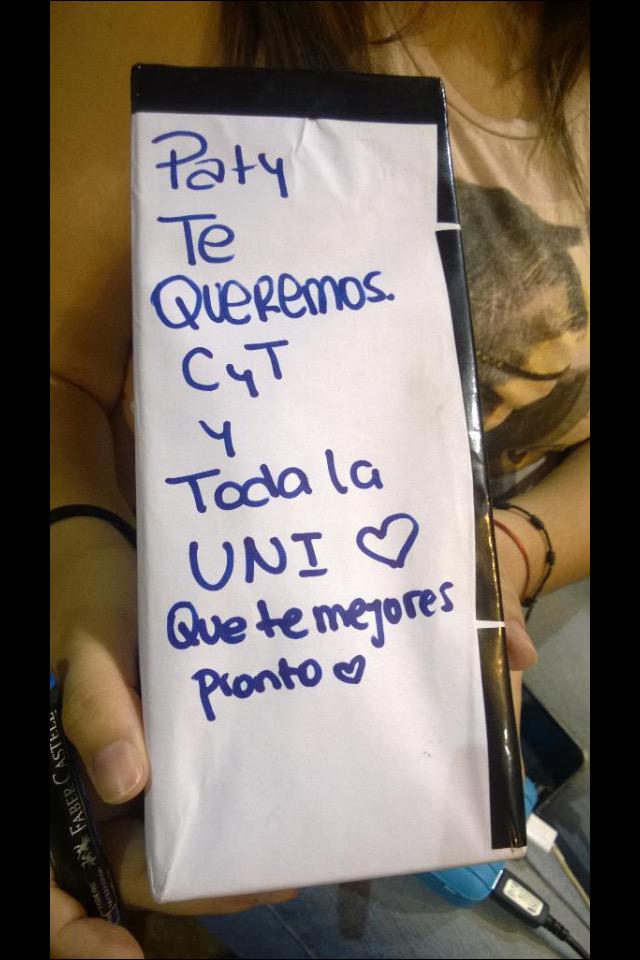 Paty
Te
QUEREMOS.
CyT
y
Toda la
UNI ♡
Que te mejores
pronto ♡
FABER CASTELL